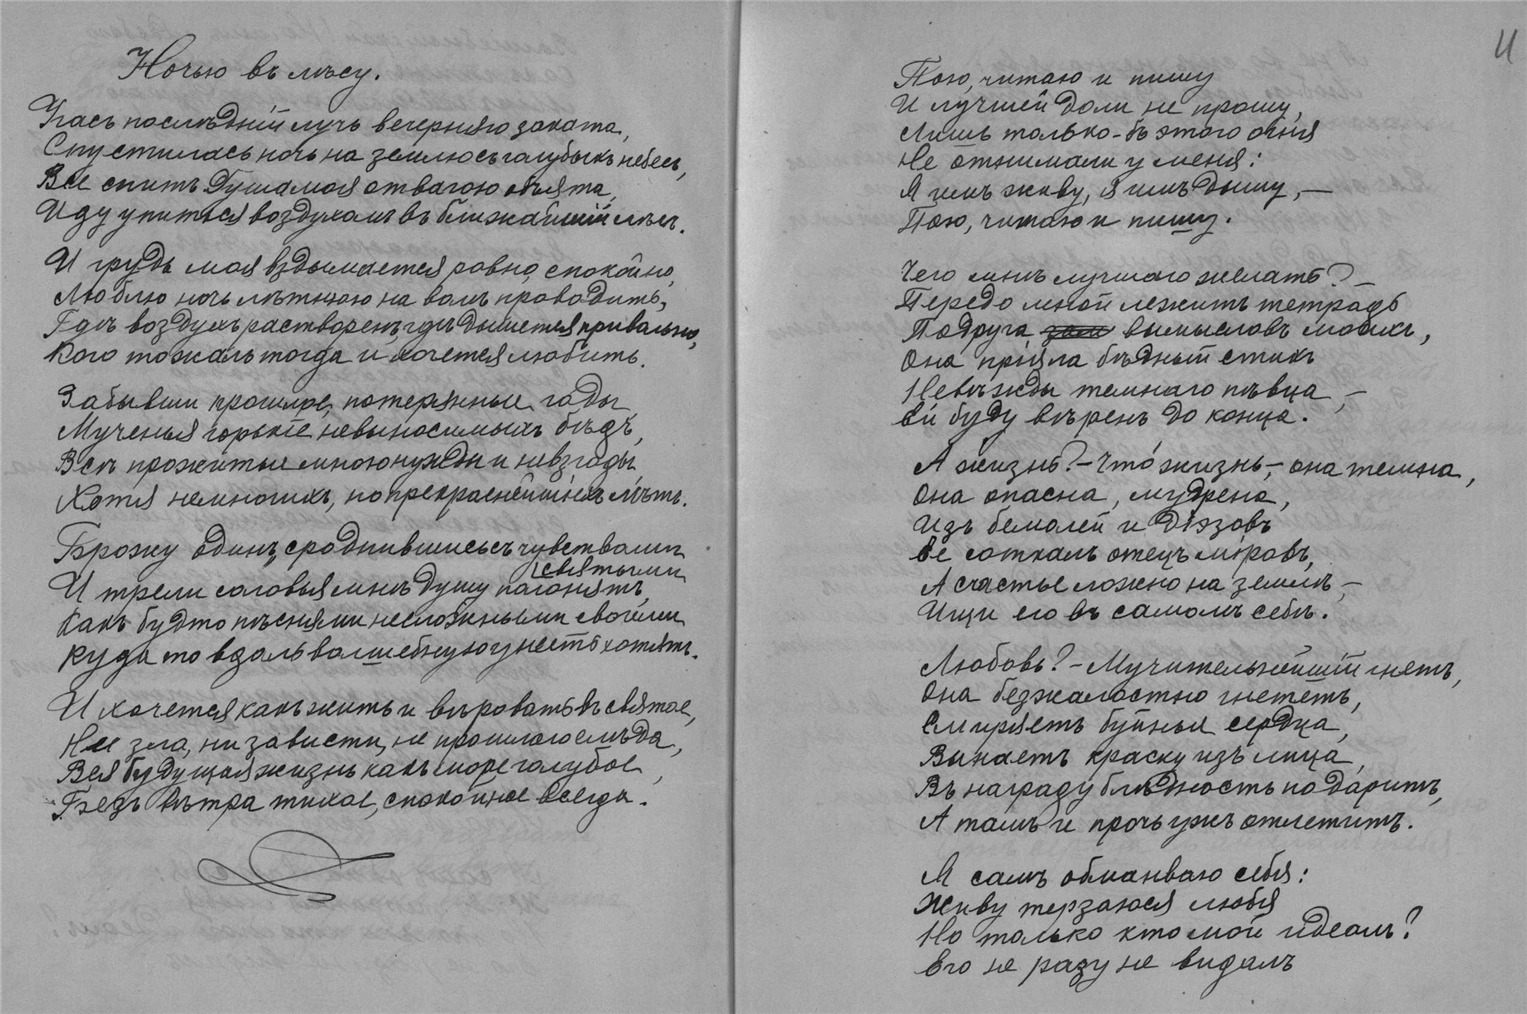 Ночью въ лѣсу.
Угасъ послѣдній лучъ вечерняго заката,
Спустилась ночь на землю съ голубыхъ небесъ,
Все спитъ. Душа моя отвагою объята,
Иду упиться воздухомъ въ ближайшій лѣсъ.
И грудь моя вздымается ровно, спокойно,
Люблю ночь лѣтнюю на волѣ проводить,
Гдѣ воздухъ растворенъ, гдѣ дышется привольно,
Кого то жаль тогда и хочется любить.
Забывши прошлое, потерянные годы
Мученья горькіе невыносимыхъ бѣдъ,
Всѣ прожитыя мною нужды и невзгоды
Хотя немногихъ, но прекраснѣйшихъ лѣтъ.
Брожу одинъ, сроднившись съ чувствами
святыми
И трели соловья мнѣ душу полонятъ,
Какъ будто пѣснями неложными своими
Куда то вдаль волшебную унести хотятъ.
И хочется какъ жить и вѣровать въ святое,
Не зла, ни зависти, не прошлаго слѣда,
Вся будущая жизнь какъ море голубое,
Безъ вѣтра тихое, спокойное всегда.
11
Пою, читаю и пишу
И лучшей доли не прошу,
Лишь только-бъ этого огня
Не отнимали у меня:
Я имъ живу, я имъ дышу, —
Пою, читаю и пишу.
Чего мнѣ лучшаго желать? —
Передо мной лежитъ тетрадь
Подруга вымысловъ моихъ,
Она пріяла бѣдный стихъ
Невѣжды темнаго пѣвца, —
Ей буду вѣренъ до конца.
А жизнь? — Что жизнь, — она темна,
Она опасна, мудрена,
Изъ бемолей и діэзовъ
Ее соткалъ отецъ міровъ,
А счастье ложно на землѣ, —
Ищи его въ самомъ себѣ.
Любовь? — Мучительнѣйшій гнетъ,
Она безжалостно гнететъ,
Смиряетъ буйныя сердца,
Вынаетъ краску изъ лица,
Въ награду блѣдность подаритъ,
А тамъ и прочь ужъ отлетитъ.
Я самъ обманваю себя:
Живу терзаюся любя
Но только кто мой идеалъ?
Его не разу не видалъ